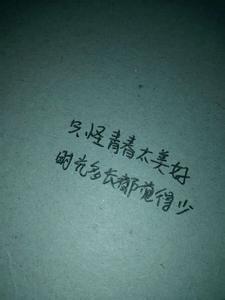 只怪青春太美好
时光多长都觉得少